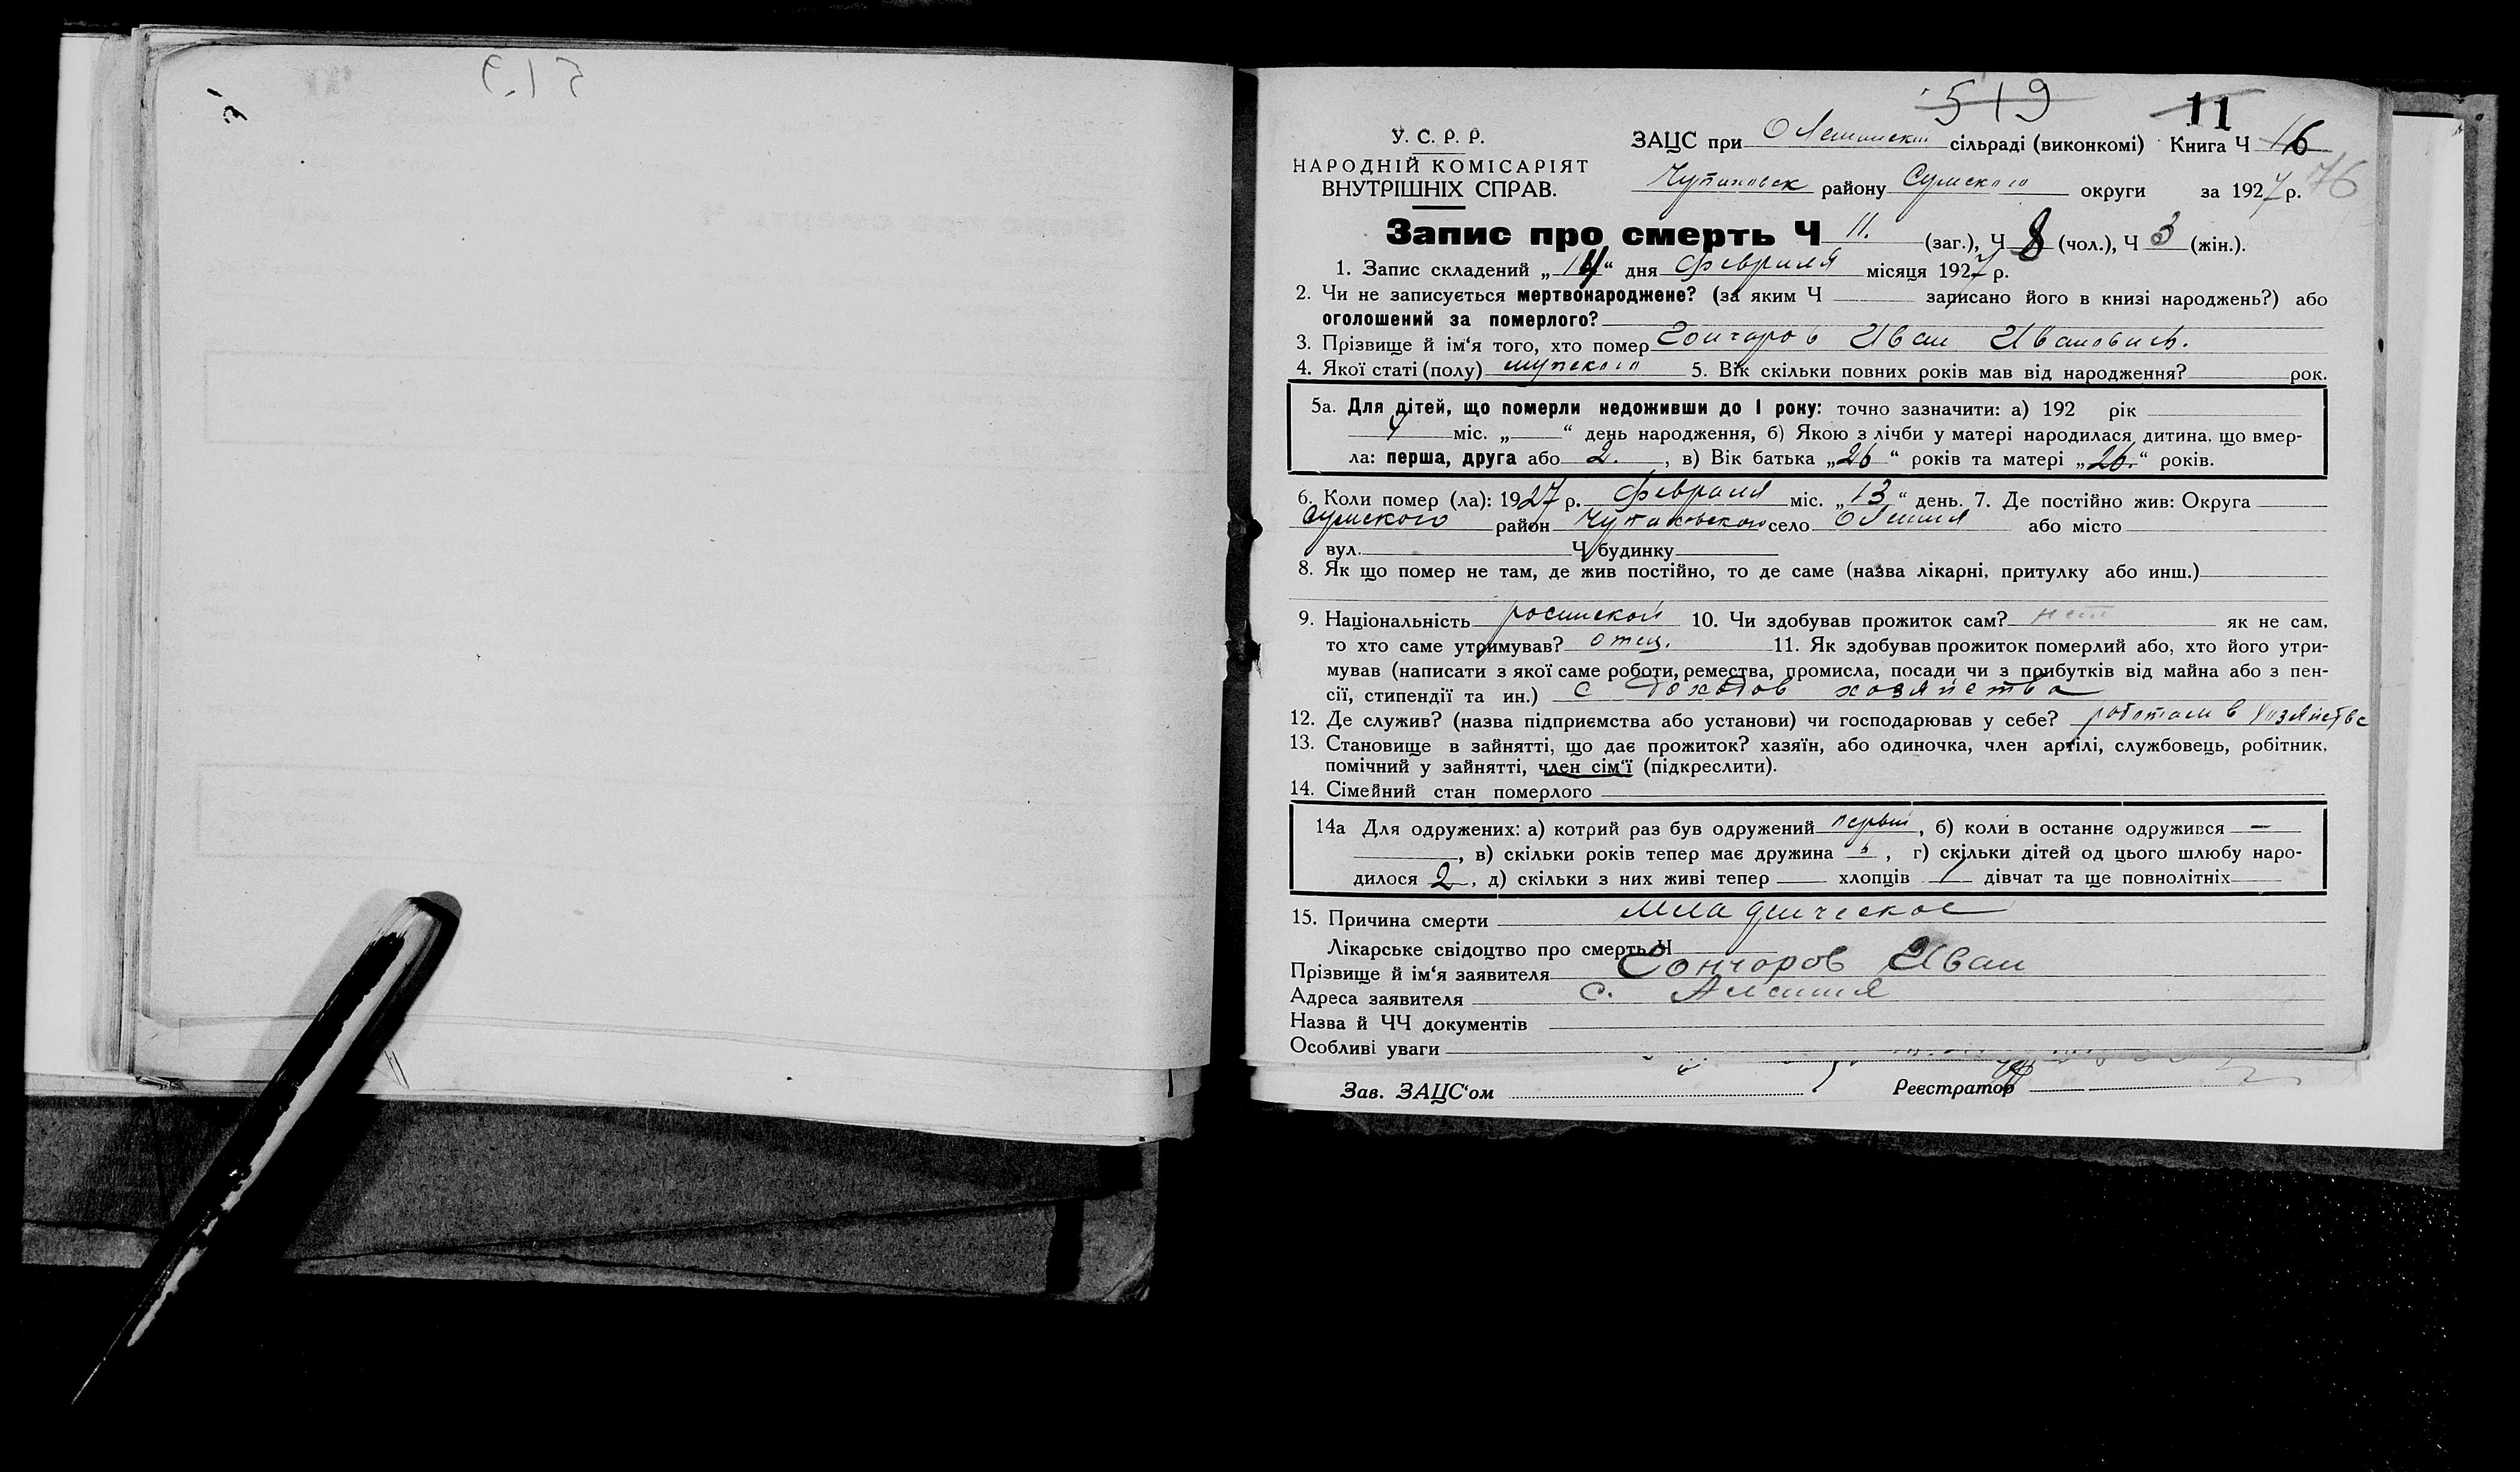 519
11
У. С. Р. Р.
НАРОДНІЙ КОМІСАРІЯТ
ВНУТРІШНІХ СПРАВ.
ЗАЦС при сільраді (виконкомі) Книга Ч 16
76
району Сумского округи за 1927 р.
Запис про смерть Ч 11. (заг.), Ч 8 (чол.), Ч 3 (жін.).
1. Запис складений „14“ дня февраля місяця 1927 р.
2. Чи не записується мертвонароджене? (за яким Ч записано його в книзі народжень?) або
оголошений за померлого?
3. Прізвище й ім'я того, хто помер Гончаров Иван Иванович.
4. Якої статі (полу) мужского 5. Вік скільки повних років мав від народження? рок.
5а. Для дітей, що померли недоживши до 1 року: точно зазначити: а) 192 рік
міс. „ “ день народження, б) Якою з лічби у матері народилася дитина, що вмер-
ла: перша, друга або 2. , в) Вік батька „26“ років та матері „26.“ років.
6. Коли помер (ла): 1927 р. февраля міс. „13“ день. 7. Де постійно жив: Округа
Сумского район село або місто
вул. Ч будинку
8. Як що помер не там, де жив постійно, то де саме (назва лікарні, притулку або инш.)
9. Національність 10. Чи здобував прожиток сам? нет як не сам,
то хто саме утримував? отец. 11. Як здобував прожиток померлий або, хто його утри-
мував (написати з якої саме роботи, ремества, промисла, посади чи з прибутків від майна або з пен-
сії, стипендії та ин.) с доходов хозяйства
12. Де служив? (назва підприємства або установи) чи господарював у себе? в хозяйстве
13. Становище в зайнятті, що дає прожиток? хазяїн, або одиночка, член артілі, службовець, робітник,
помічний у зайнятті, член сім'ї (підкреслити).
14. Сімейний стан померлого
14а Для одружених: а) котрий раз був одружений первый, б) коли в останнє одружився —
, в) скільки років тепер має дружина , г) скільки дітей од цього шлюбу наро-
дилося 2, д) скільки з них живі тепер хлопців 1 дівчат та ще повнолітніх
15. Причина смерти Младенческое
Лікарське свідоцтво про смерть Ч
Прізвище й ім'я заявителя Гончаров Иван
Адреса заявителя с.
Назва й ЧЧ документів
Особливі уваги
Зав. ЗАЦС'ом Реєстратор